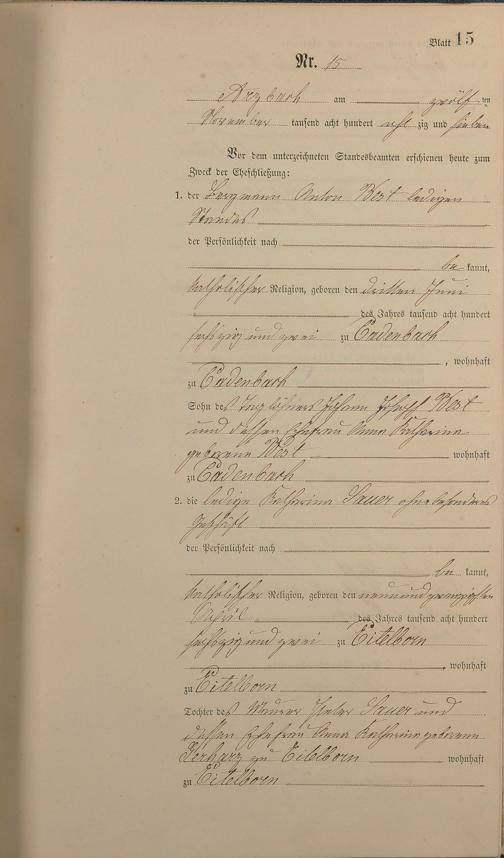 Blatt 15
Nr. 15
Arzbach am zwölften
November tausend acht hundert acht zig und sieben
Vor dem unterzeichneten Standesbeamten erschienen heute zum
Zweck der Eheschließung:
1. der Bergmann Anton West ledigen
Standes
der Persönlichkeit nach
be kannt,
katholischer Religion, geboren den dritten Juni
des Jahres tausend acht hundert
sechszig und zwei zu Cadenbach
, wohnhaft
zu Cadenbach
Sohn des Taglöhners Johann Joseph West
und dessen Ehefrau Anna Katharina
geborene West wohnhaft
zu Cadenbach
2. die ledige Katharina Sauer ohne besonderes
Geschäft
der Persönlichkeit nach
be kannt,
katholischer Religion, geboren den neunundzwanzigsten
April des Jahres tausend acht hundert
sechszig und zwei zu Eitelborn
, wohnhaft
zu Eitelborn
Tochter des Maurer Peter Sauer und
dessen Ehefrau Anna Katharina geborene
zu Eitelborn wohnhaft
zu Eitelborn